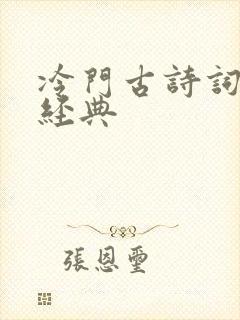 冷門古詩詞
經典
張恩璽